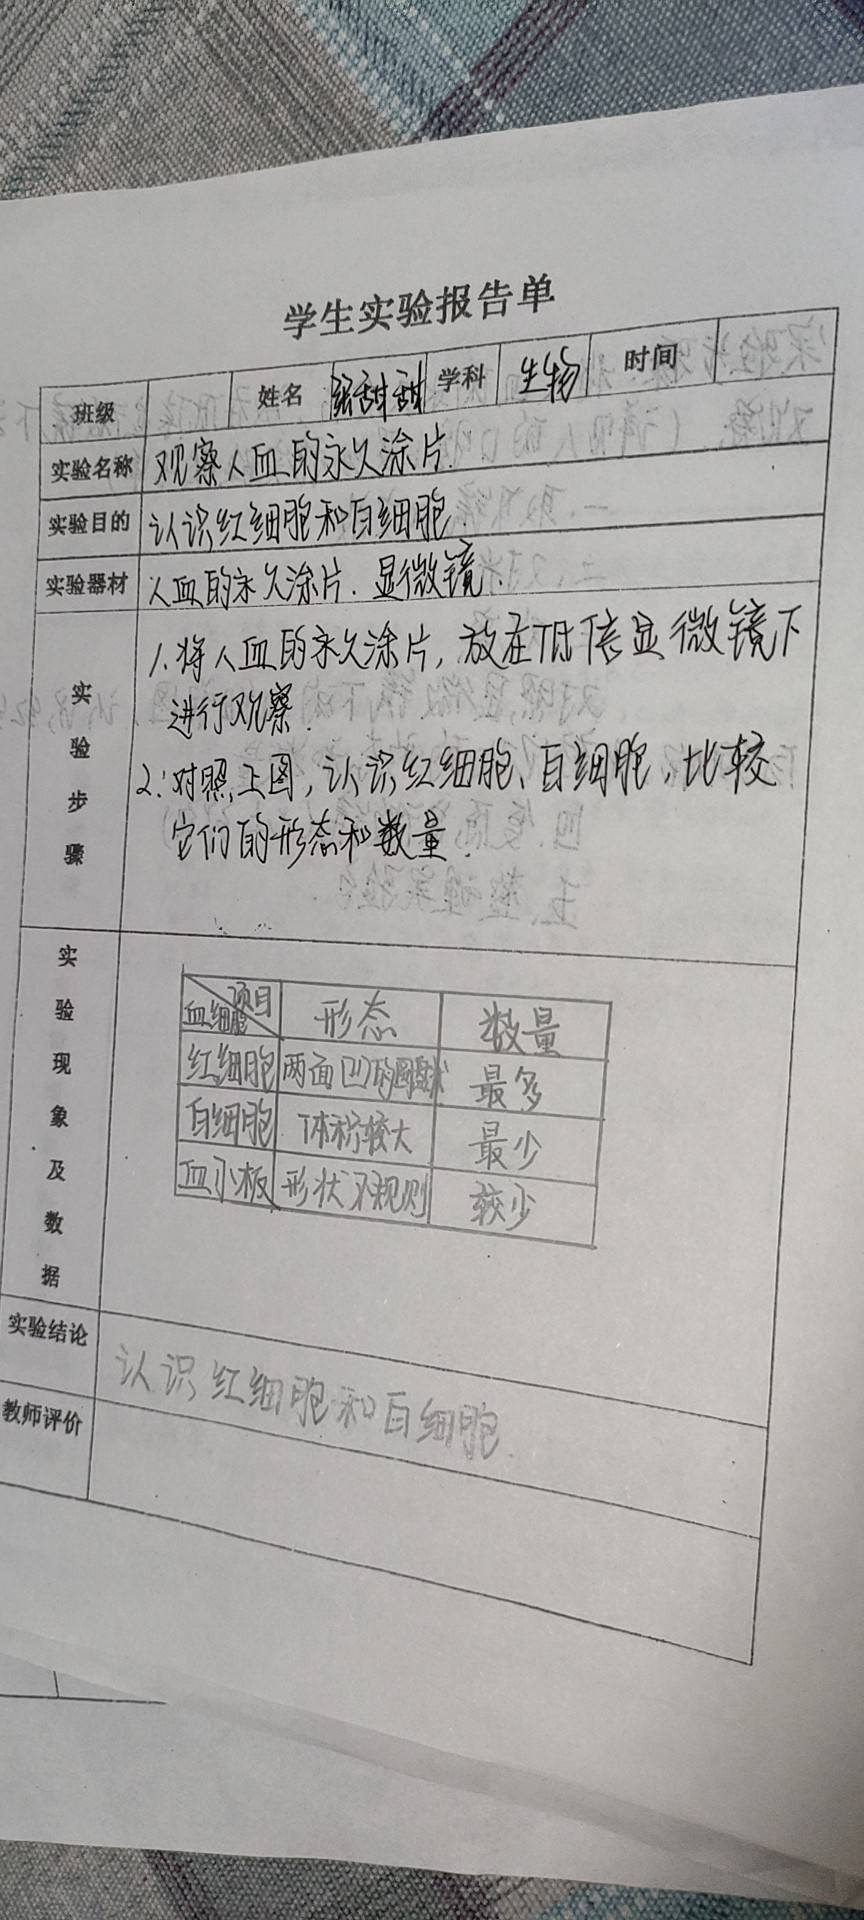 学生实验报告单
班级 姓名 张甜甜 学科 生物 时间
实验名称 观察人血的永久涂片.
实验目的 认识红细胞和白细胞.
实验器材 人血的永久涂片. 显微镜.
实验步骤
1.将人血的永久涂片,放在低倍显微镜下
进行观察.
2.对照上图,认识红细胞、白细胞,比较
它们的形态和数量.
实验现象及数据
项目 血细胞 形态 数量
红细胞 两面凹的圆盘状 最多
白细胞 体积较大 最少
血小板 形状不规则 较少
实验结论 认识红细胞和白细胞.
教师评价